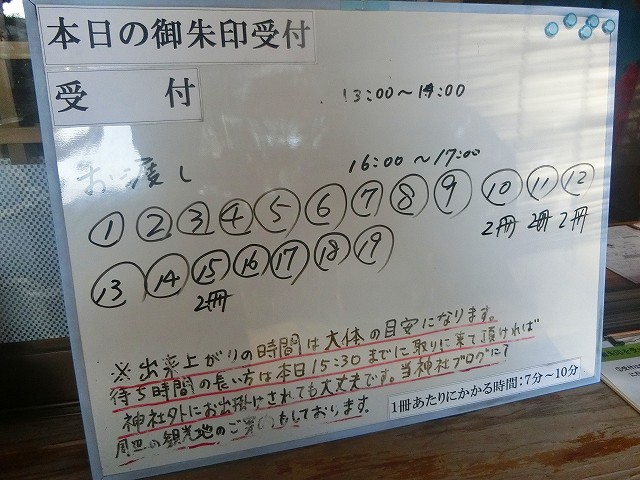 本日の御朱印受付
受 付 13:00〜14:00
お渡し 16:00〜17:00
① ② ③ ④ ⑤ ⑥ ⑦ ⑧ ⑨ ⑩ ⑪ ⑫
2冊 2冊 2冊
⑬ ⑭ ⑮ ⑯ ⑰ ⑱ ⑲
2冊
※出来上がりの時間は大体の目安になります。
待ち時間の長い方は本日15:30までに取りに来て頂ければ
神社外にお出掛けされても大丈夫です。当神社ブログにて
周辺の観光地のご案内もしております。
1冊あたりにかかる時間:7分〜10分